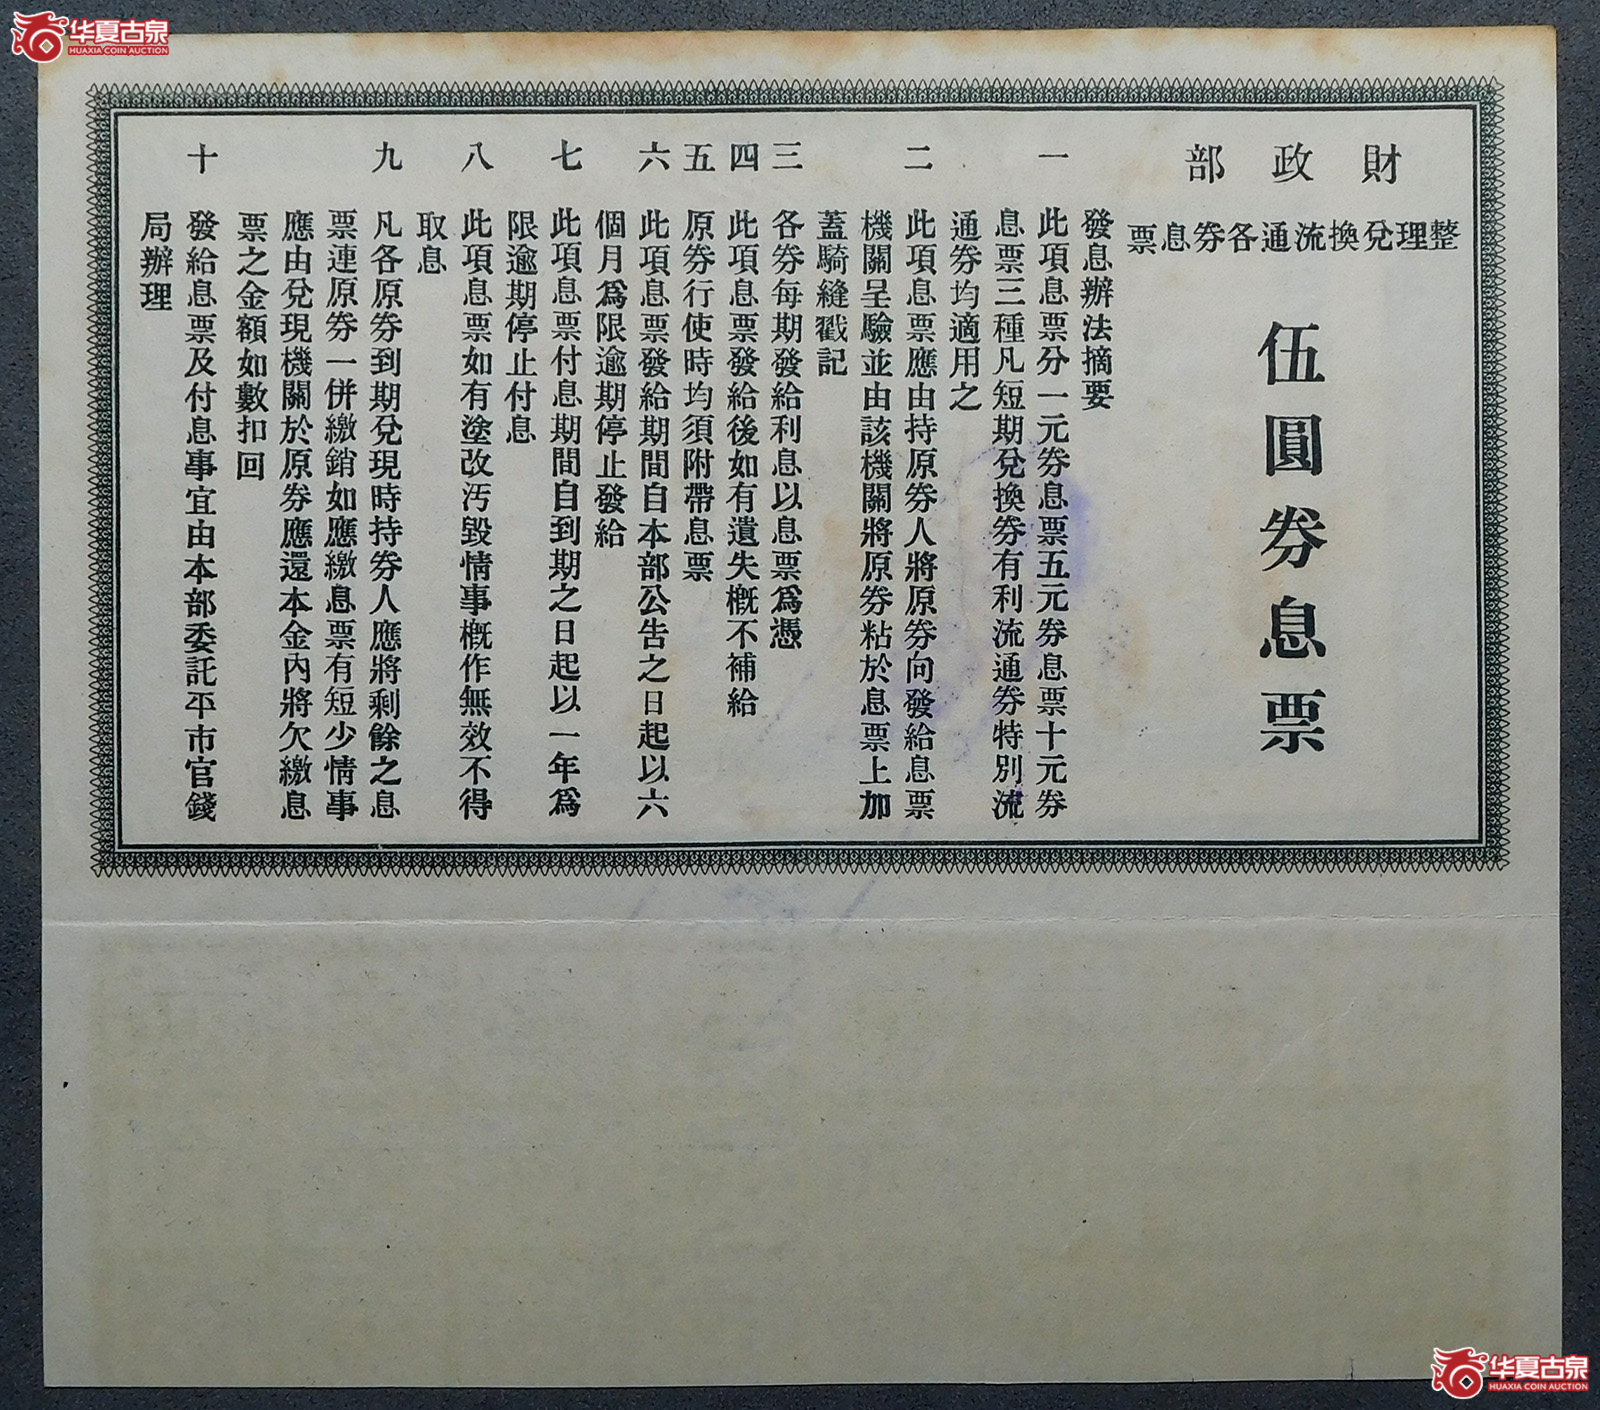 华夏古泉
HUAXIA COIN AUCTION
財政部
整理兌換流通各券息票
伍圓券息票
發息辦法摘要
一 此項息票分一元券息票五元券息票十元券
息票三種凡短期兌換券有利流通券特別流
通券均適用之
二 此項息票應由持原券人將原券向發給息票
機關呈驗並由該機關將原券粘於息票上加
蓋騎縫戳記
三 各券每期發給利息以息票爲憑
四 此項息票發給後如有遺失概不補給
五 原券行使時均須附帶息票
六 此項息票發給期間自本部公告之日起以六
個月爲限逾期停止發給
七 此項息票付息期間自到期之日起以一年爲
限逾期停止付息
八 此項息票如有塗改汚毀情事概作無效不得
取息
九 凡各原券到期兌現時持券人應將剩餘之息
票連原券一併繳銷如應繳息票有短少情事
應由兌現機關於原券應還本金內將欠繳息
票之金額如數扣回
十 發給息票及付息事宜由本部委託平市官錢
局辦理
华夏古泉
HUAXIA COIN AUCTION